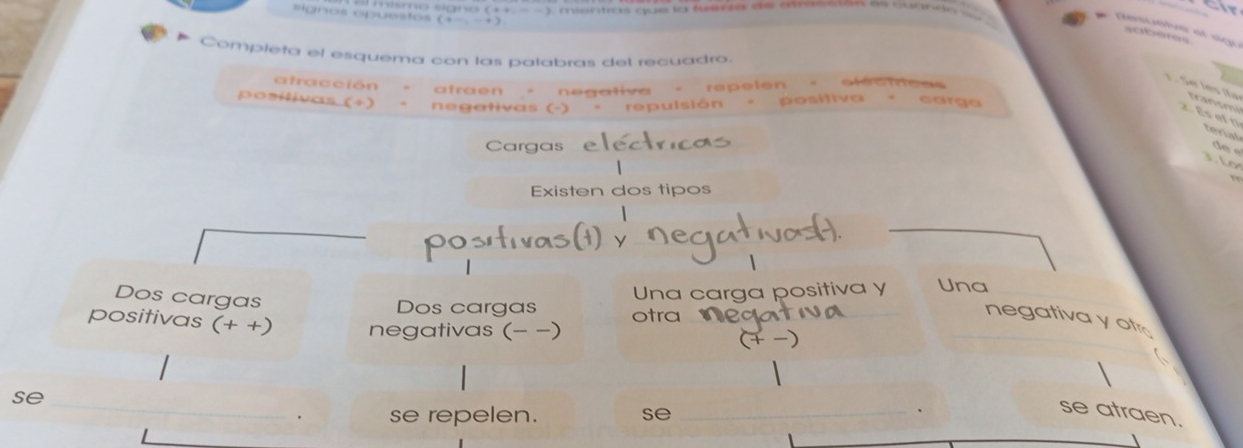 el mismo signo (++, --), mientras que la fuerza de atracción es cuando
signos opuestos (+-, -+).
Completa el esquema con las palabras del recuadro.
atracción • atraen • negativa • repelen • eléctricas
positivas (+) • negativas (-) • repulsión • positiva • carga
Cargas eléctricas
Existen dos tipos
positivas (+) y negativas (-).
Dos cargas
positivas (+ +)
Dos cargas
negativas (- -)
Una carga positiva y
otra negativa
(+ -)
Una
negativa y otra
se ____ .
se repelen.
se ____ .
se atraen.
1. Se les
2. Es el
de
3. Los